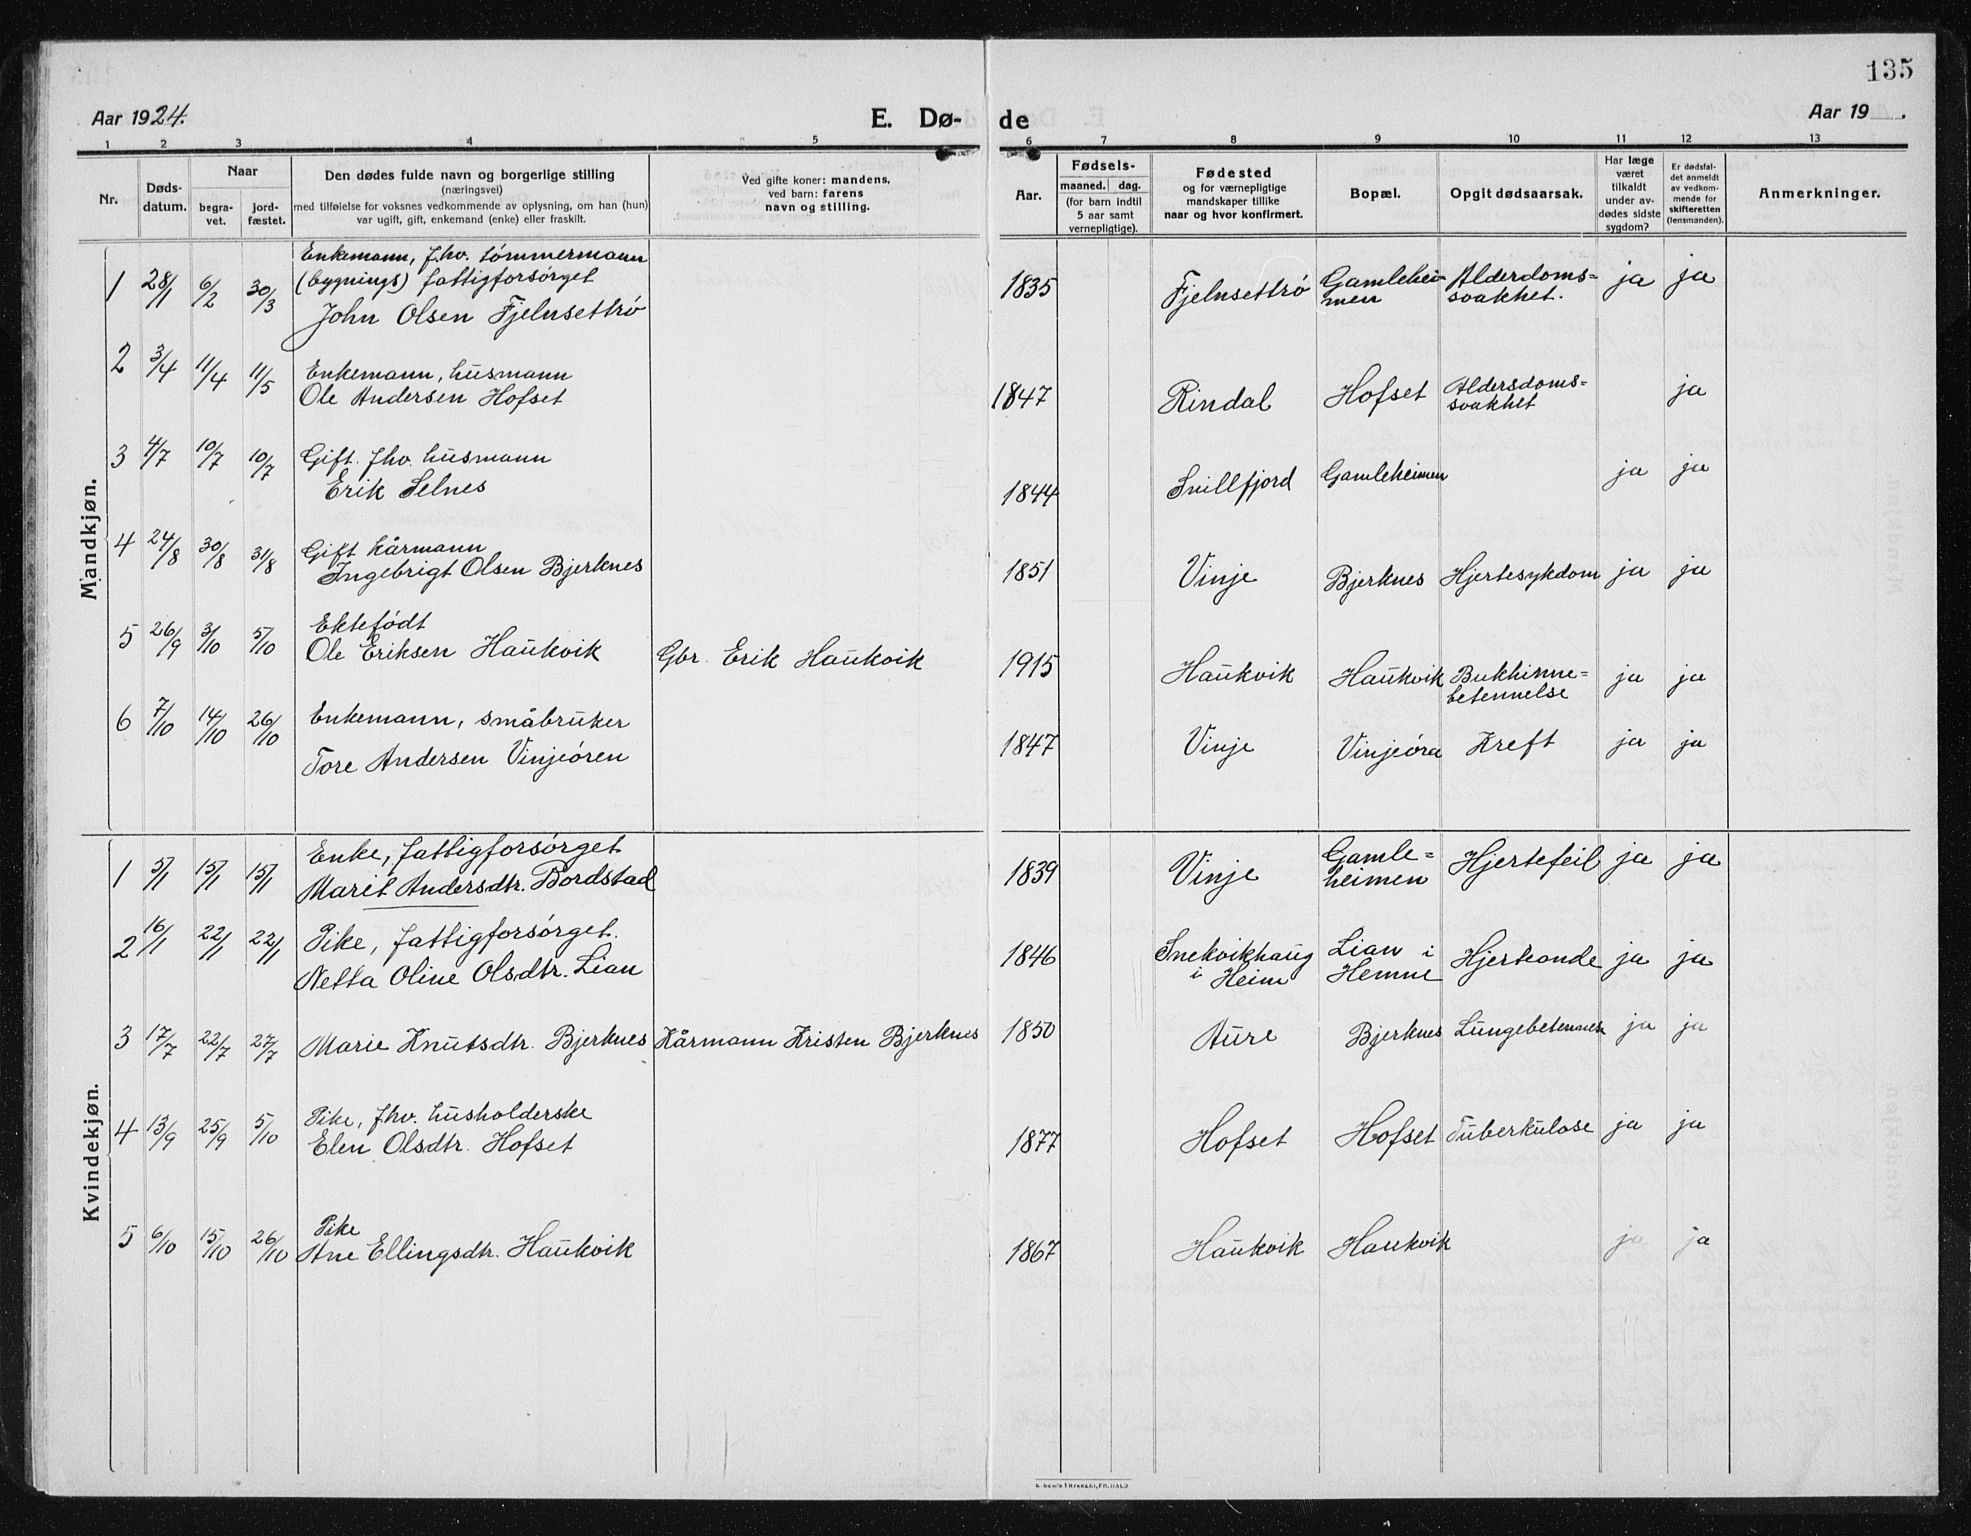 135
Aar 1924. E. Dø- de Aar 19 .
1 2 3 4 5 6 7 8 9 10 11 12 13
Nr.
Døds-
datum.
Naar
begra-
vet.
jord-
fæstet.
Den dødes fulde navn og borgerlige stilling
(næringsvei)
med tilføielse for voksnes vedkommende av oplysning, om han (hun)
var ugift, gift, enkemand (enke) eller fraskilt.
Ved gifte koner: mandens,
ved barn: farens
navn og stilling.
Aar.
Fødsels-
maaned. dag.
(for barn indtil
5 aar samt
vernepligtige).
Fødested
og for værnepligtige
mandskaper tillike
naar og hvor konfirmert.
Bopæl.
Opgit dødsaarsak.
Har læge
været
tilkaldt
under av-
dødes sidste
sygdom?
Er dødsfal-
det anmeldt
av vedkom-
mende for
skifteretten
(lensmanden).
Anmerkninger.
Mandkjøn.
Enkemann, fhv. tømmermann
1 28/1 6/2 30/3 (bygnings) fattigforsørget 1835 Fjelnsettrø Gamlehei- Alderdoms= ja ja
John Olsen Fjelnsettrø men svakhet.
2 3/4 11/4 11/5 Enkemann, husmann
Ole Andersen Hofset 1847 Rindal Hofset Aldersdoms= ja
svakhet
3 4/7 10/7 10/7 Gift. fhv. husmann
Erik Selnes 1844 Snillfjord Gamleheimen ja ja
4 24/8 30/8 31/8 Gift kårmann
Ingebrigt Olsen Bjerknes 1851 Vinje Bjerknes Hjertesykdom ja ja
5 26/9 3/10 5/10 Ektefødt
Ole Eriksen Haukvik Gbr. Erik Haukvik 1915 Haukvik Haukvik Bukhinne= ja ja
betennelse
6 7/10 14/10 26/10 Enkemann, småbruker
Tore Andersen Vinjeøren 1847 Vinje Vinjeøra Kreft ja ja
Kvindekjøn.
1 5/1 15/1 15/1 Enke, fattigforsørget
Marit Andersdtr. Bordstad 1839 Vinje Gamle= Hjertefeil ja ja
heimen
2 16/1 22/1 22/1 Pike, fattigforsørget.
Netta Oline Olsdtr. Lian 1846 Snekvikhaug Lian i Hjerkonde ja ja
i Heim Hemne
3 17/7 22/7 27/7 Marie Knutsdtr. Bjerknes Kårmann Kristen Bjerknes 1850 Aure Bjerknes ja ja
4 13/9 25/9 5/10 Pike, fhv. husholderske
Elen Olsdtr. Hofset 1877 Hofset Hofset Tuberkulose ja ja
5 6/10 15/10 26/10 Pike
Ane Ellingsdtr. Haukvik 1867 Haukvik Haukvik ja ja